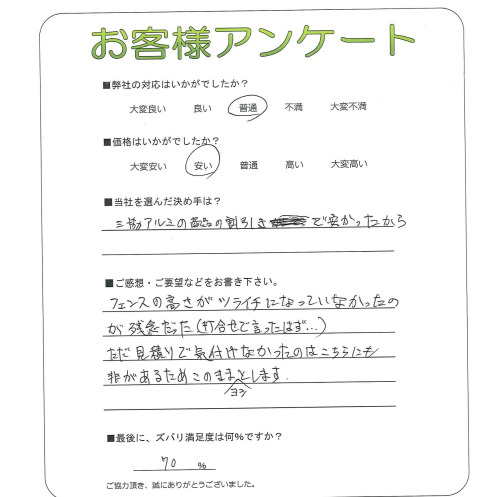 お客様アンケート
■弊社の対応はいかがでしたか?
大変良い 良い 普通 不満 大変不満
■価格はいかがでしたか?
大変安い 安い 普通 高い 大変高い
■当社を選んだ決め手は?
三協アルミの商品の割引き で安かったから
■ご感想・ご要望などをお書き下さい。
フェンスの高さがツライチになっていなかったの
が残念だった(打合せで言ったはず…)
ただ見積りで気付けなかったのはこちらにも
非があるためこのままヨシとします.
■最後に、ズバリ満足度は何%ですか?
70 %
ご協力頂き、誠にありがとうございました。